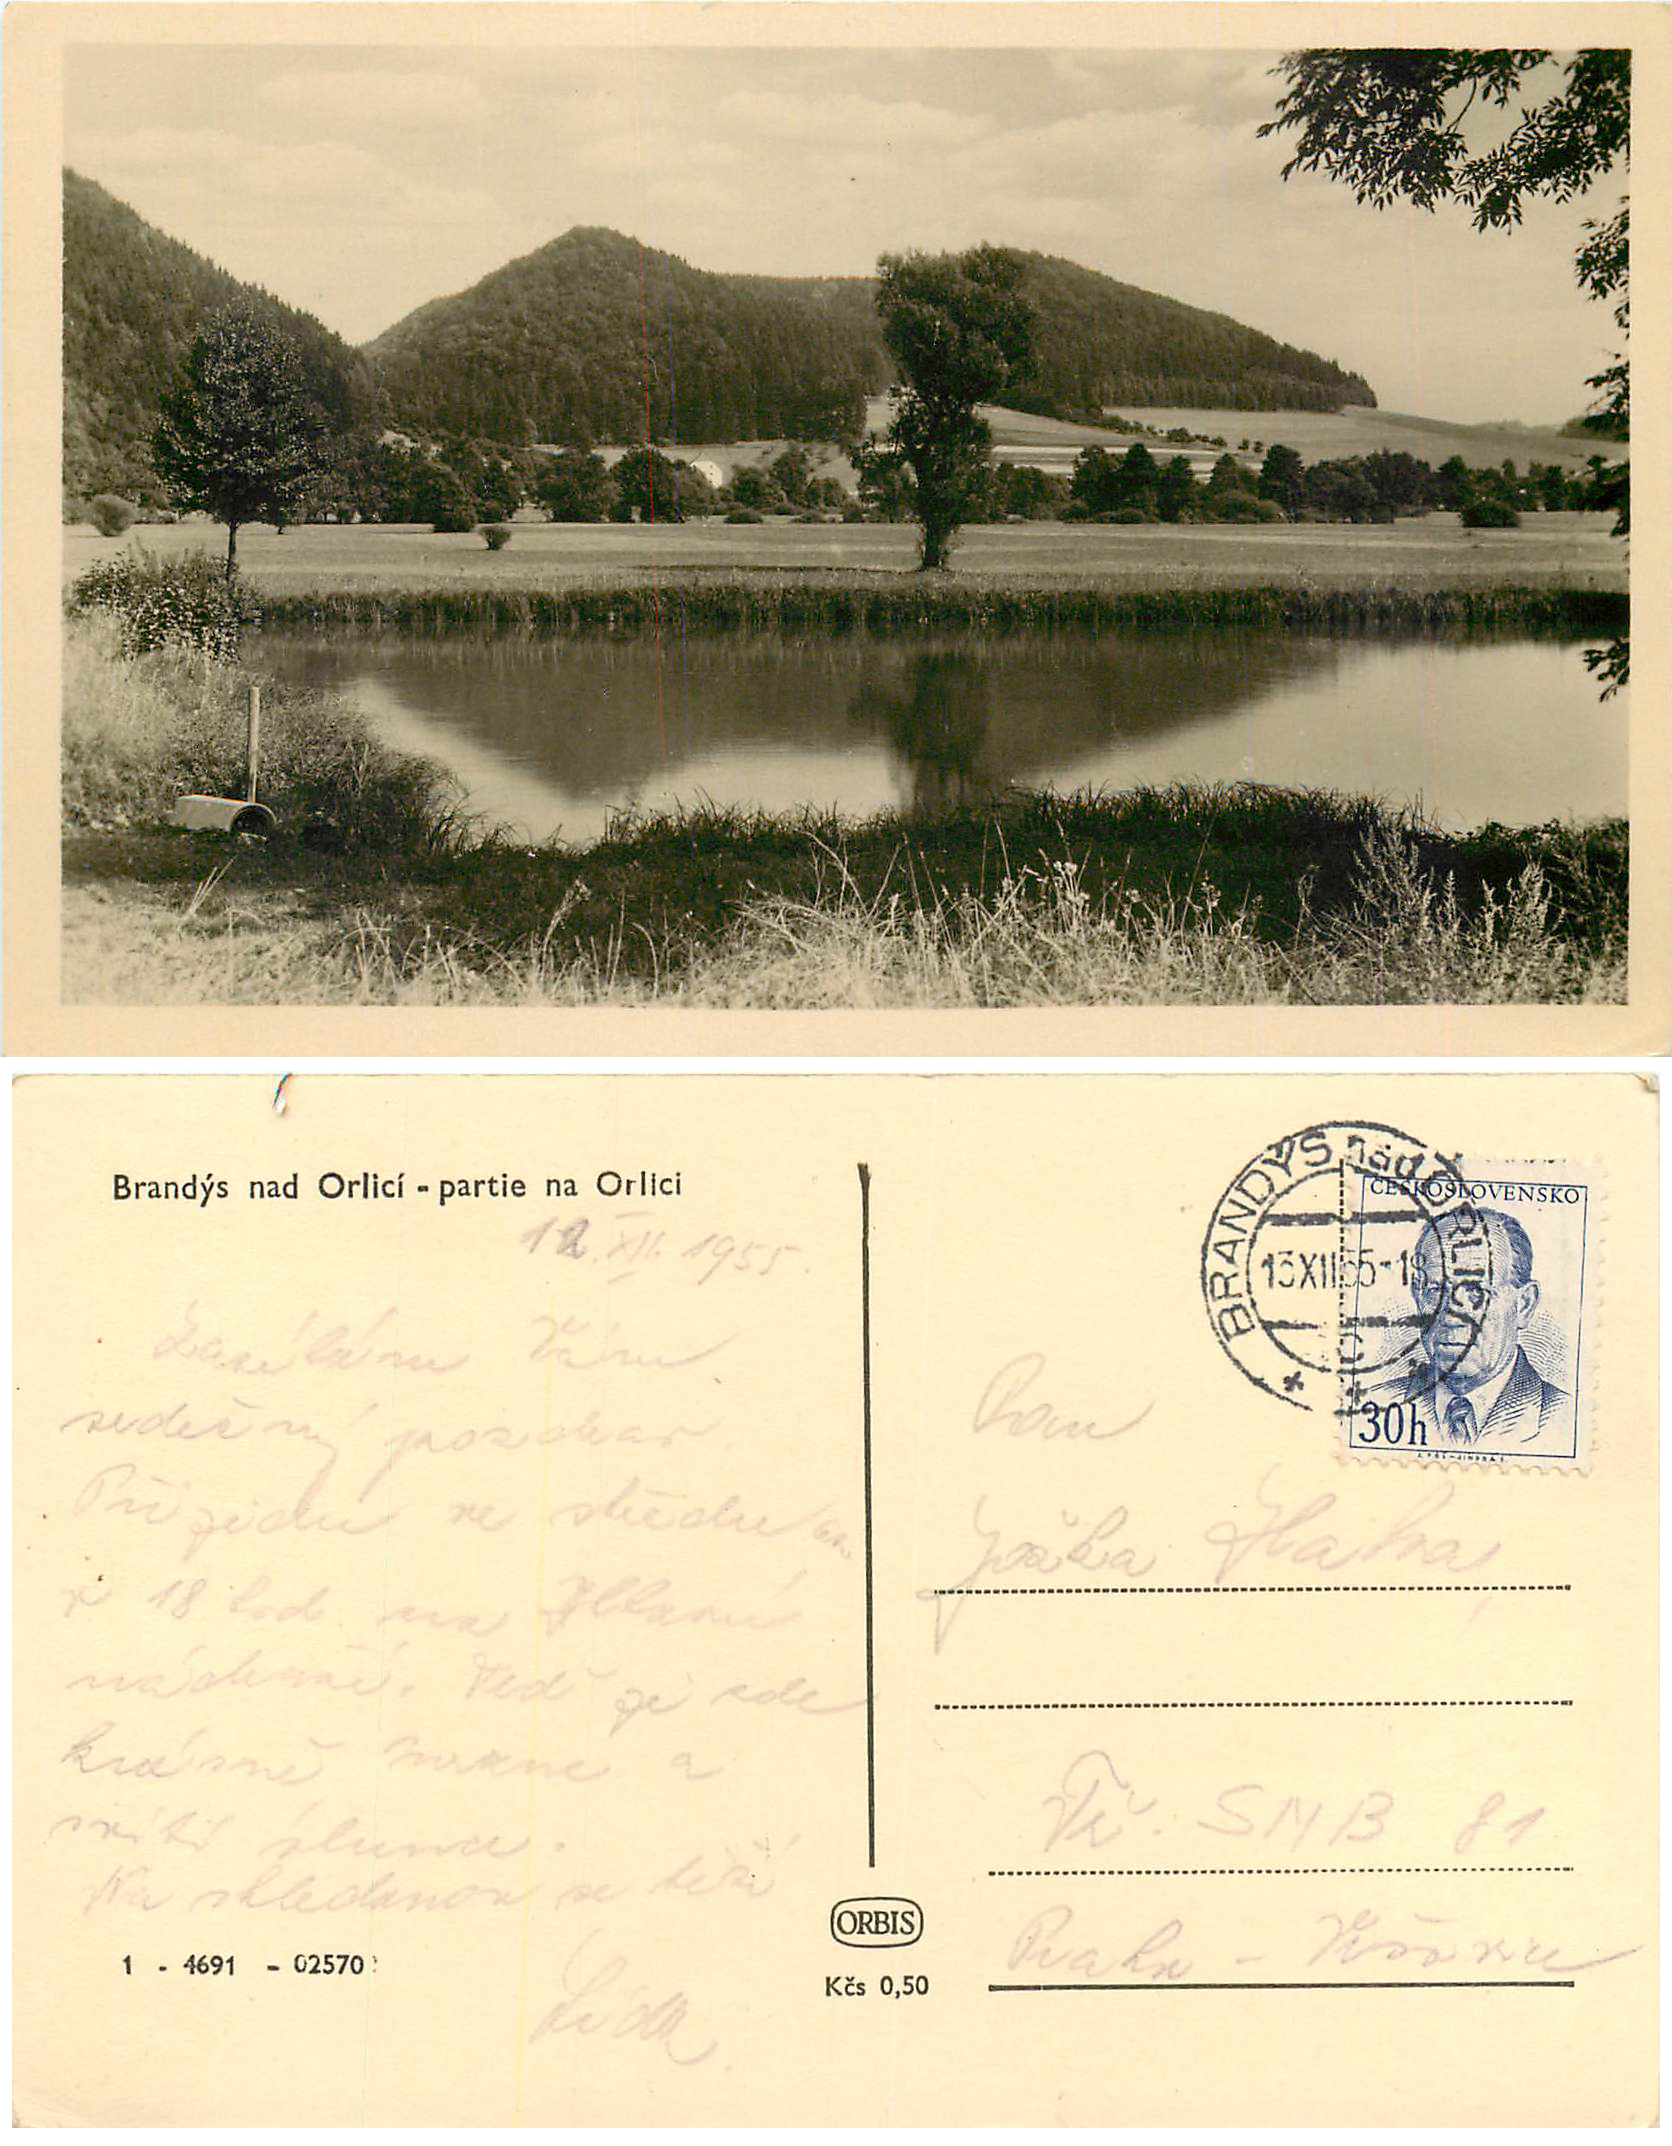 Brandýs nad Orlicí - partie na Orlici
12. XII. 1955.
Zasílám Vám
srdečný pozdrav
Přijedu ve středu
v 18 hod. na Hlavní
nádraží. Teď je zde
krásně mrzne a
svítí slunce.
Na shledanou se těší
Lída.
1 - 4691 - 02570
ORBIS
Kčs 0,50
BRANDÝS nad ORLICÍ
13XII55-18
C
ČESKOSLOVENSKO
30h
Pan
Joška
Tř. SNB 81
Praha - Vršovice